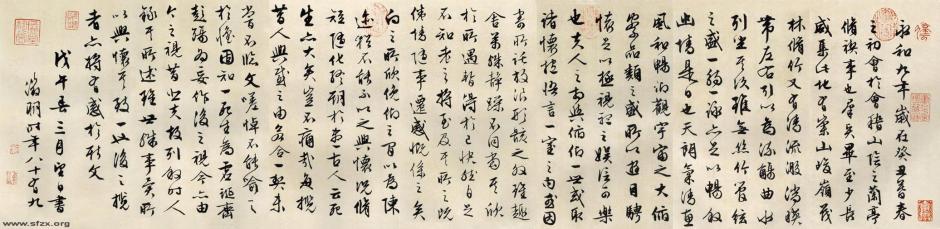 永和九年歲在癸丑暮春
之初會於會稽山陰之蘭亭
脩禊事也羣賢畢至少長
咸集此地有崇山峻嶺茂
林脩竹又有清流激湍映
帶左右引以為流觴曲水
列坐其次雖無絲竹管絃
之盛一觴一詠亦足以暢叙
幽情是日也天朗氣清惠
風和暢仰觀宇宙之大俯
察品類之盛所以遊目騁
懷足以極視聽之娛信可樂
也夫人之相與俯仰一世或取
諸懷抱悟言一室之內或因
寄所託放浪形骸之外雖趣
舍萬殊靜躁不同當其欣
於所遇暫得於己快然自足
不知老之將至及其所之既
倦情隨事遷感慨係之矣
向之所欣俛仰之間以為陳
迹猶不能不以之興懷況脩
短隨化終期於盡古人云死
生亦大矣豈不痛哉每攬
昔人興感之由若合一契未
嘗不臨文嗟悼不能喻之
於懷固知一死生為虛誕齊
彭殤為妄作後之視今亦由
今之視昔悲夫故列敘時人
錄其所述雖世殊事異所
以興懷其致一也後之攬
者亦將有感於斯文
戊午春三月望日書
徵明時年八十有九
www.sfzx.org